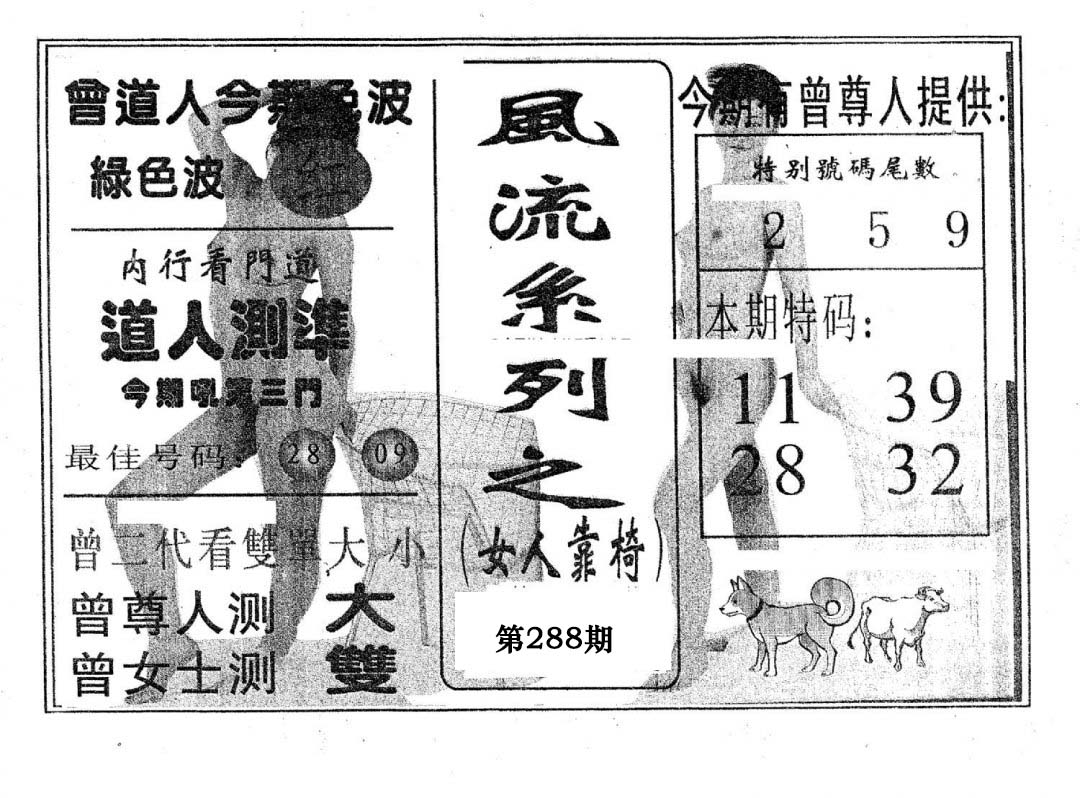 曾道人今期色波
綠色波 红
内行看門道
道人測準
今期吼第三門
最佳号码: 28 09
曾二代看雙單大小
曾尊人测 大
曾女士测 雙
風流系列之
(女人靠椅)
第288期
今期有曾尊人提供:
特别號碼尾數
2 5 9
本期特码:
11 39
28 32